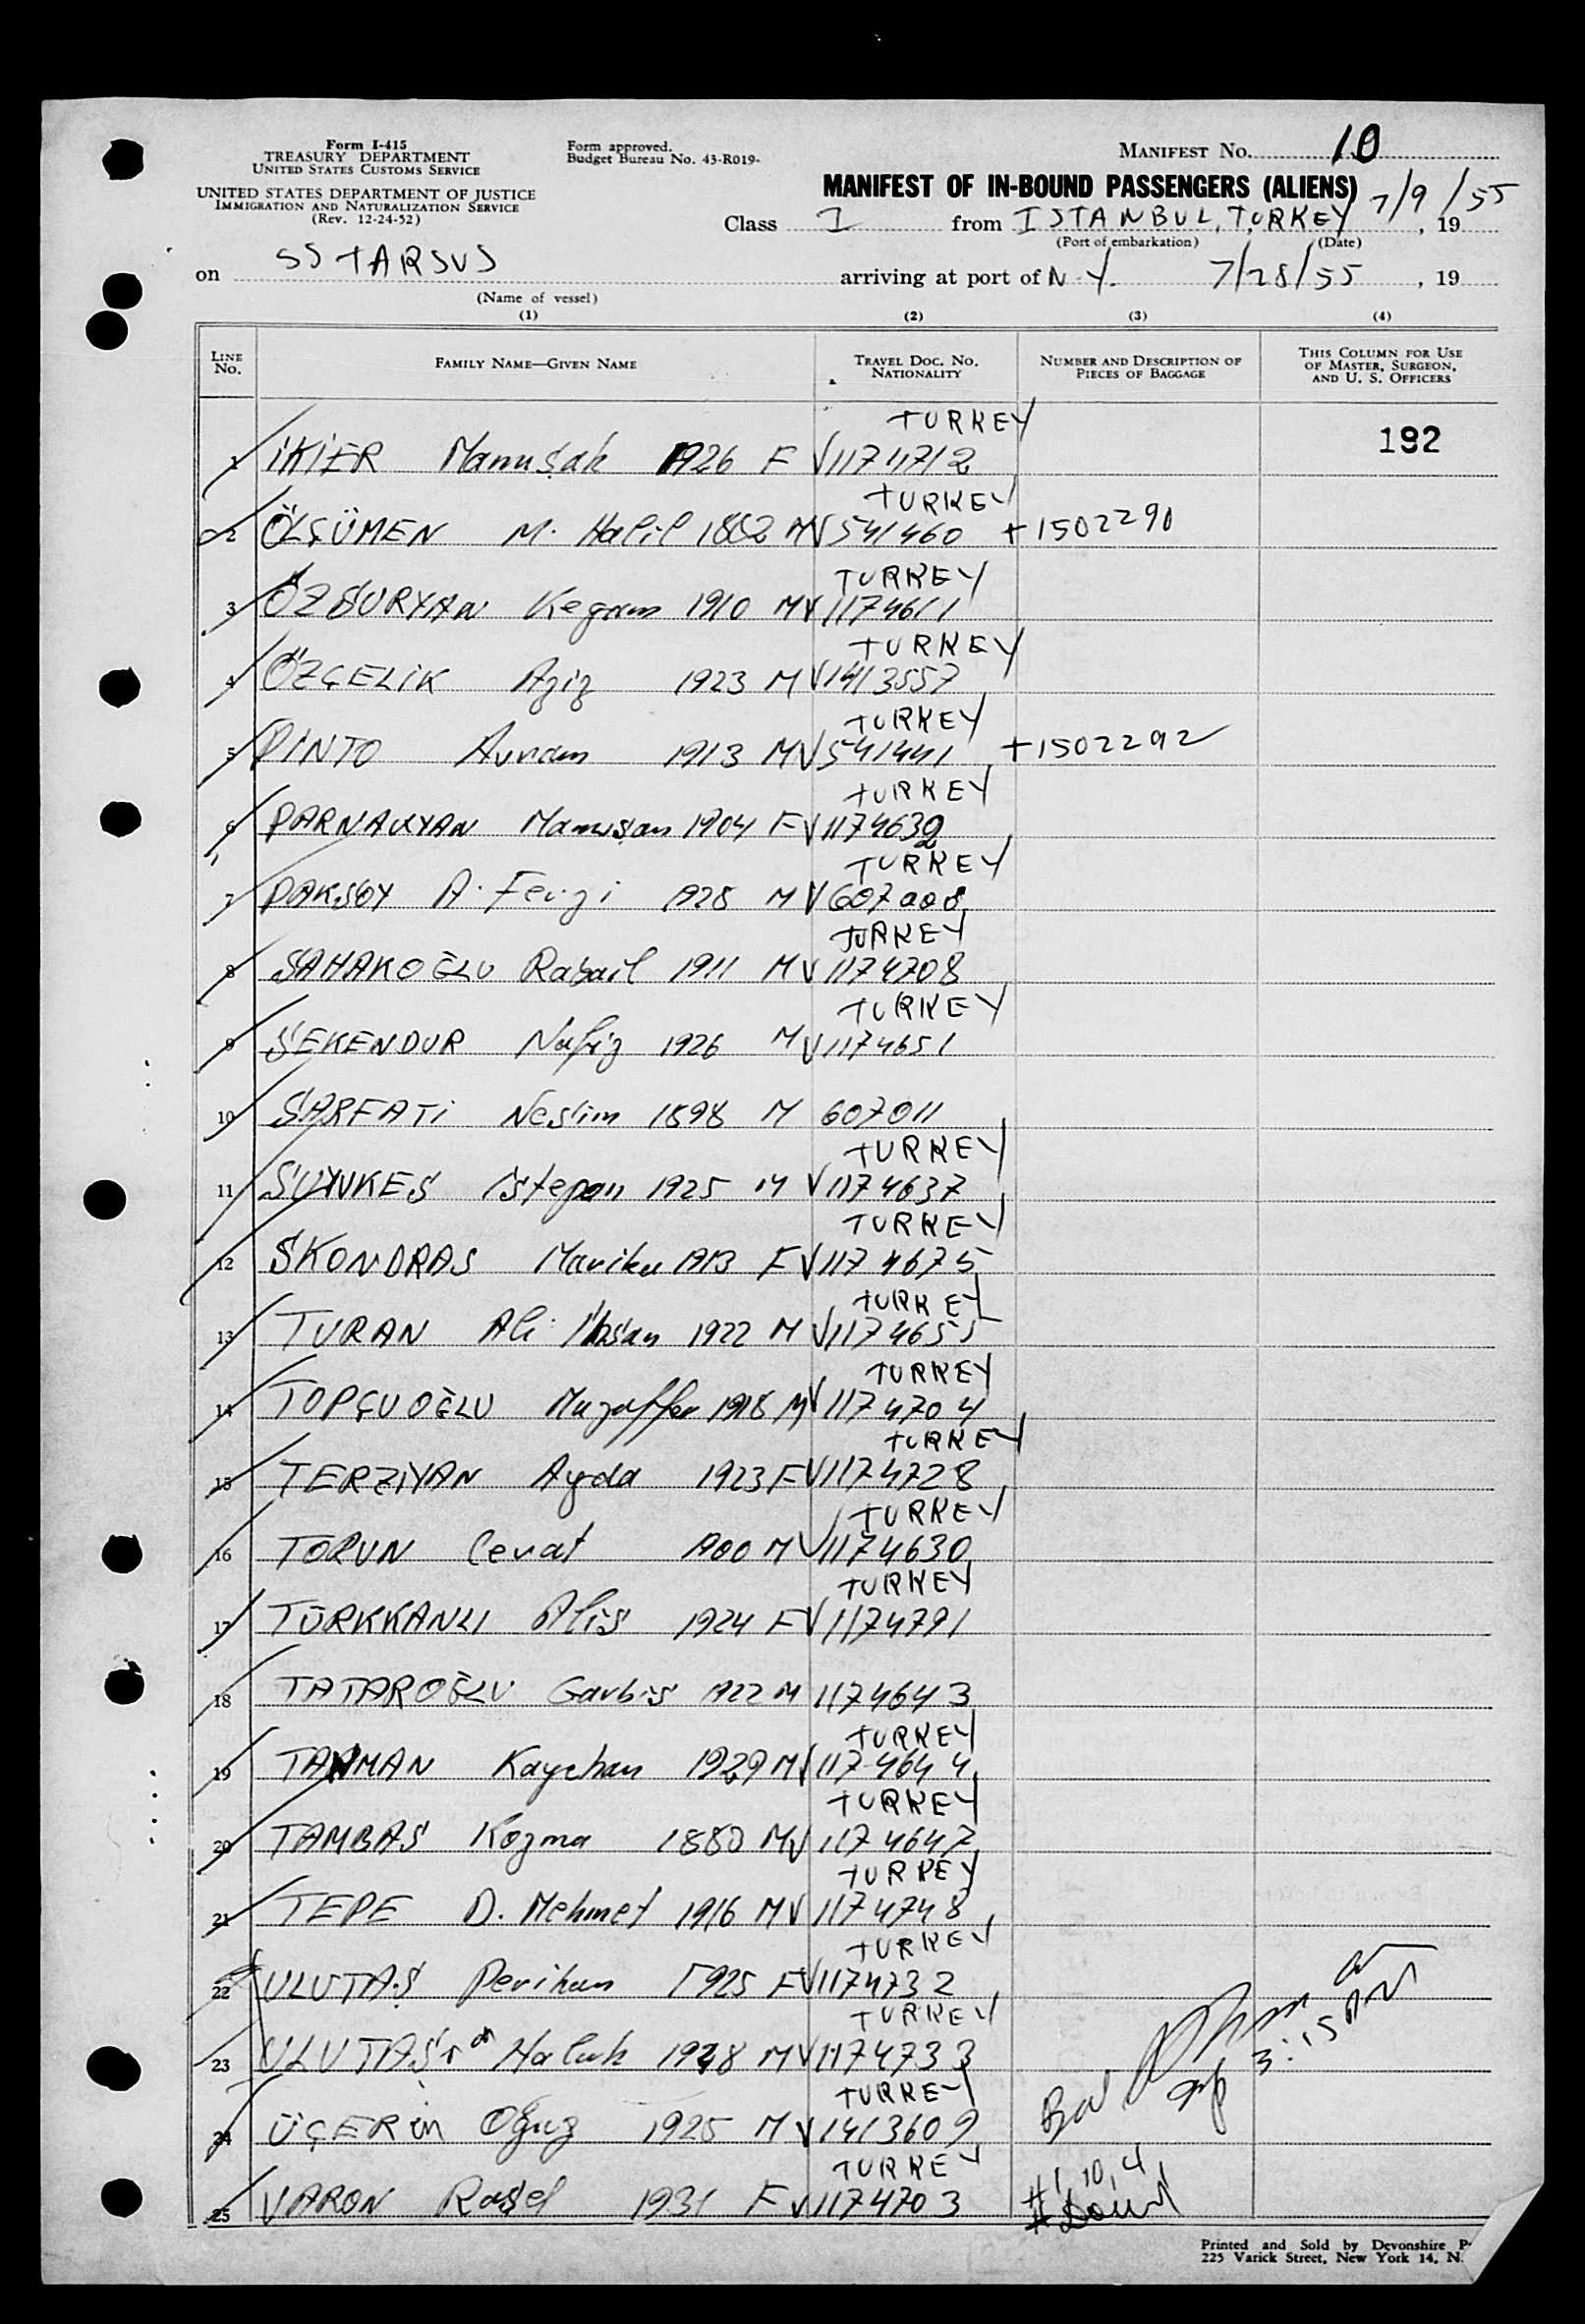 Form I-415
TREASURY DEPARTMENT
UNITED STATES CUSTOMS SERVICE
UNITED STATES DEPARTMENT OF JUSTICE
IMMIGRATION AND NATURALIZATION SERVICE
(Rev. 12-24-52)
Form approved.
Budget Bureau No. 43-R019-
MANIFEST NO. 10
MANIFEST OF IN-BOUND PASSENGERS (ALIENS)
Class I from ISTANBUL, TURKEY 7/9/55, 19
(Port of embarkation) (Date)
on SS TARSUS arriving at port of N.Y. 7/28/55, 19
(Name of vessel)
(1) (2) (3) (4)
LINE NO. FAMILY NAME—GIVEN NAME TRAVEL DOC. NO. NATIONALITY NUMBER AND DESCRIPTION OF PIECES OF BAGGAGE THIS COLUMN FOR USE OF MASTER, SURGEON, AND U. S. OFFICERS
TURKEY
1 İKİER Manuşak 1926 F 192
TURKEY
2 ÖLÇÜMEN M. Halil 1882 M 541460 +1502290
TURKEY
3 Kegam 1910 M 1174611
TURKEY
4 ÖZÇELİK Aziz 1923 M 1413557
TURKEY
5 PINTO Avram 1913 M 541441 +1502292
TURKEY
6 Manuşan 1904 F 1174639
TURKEY
7 PAKSOY A. Fevzi 1928 M 607008
TURKEY
8 SAHAKOĞLU Rafail 1911 M 1174708
TURKEY
9 SEKENDUR Nafiz 1926 M 1174651
10 SARFATİ Nesim 1898 M 607011
TURKEY
11 İstepan 1925 M 1174637
TURKEY
12 SKONDRAS Marika 1913 F 1174675
TURKEY
13 TURAN Ali İhsan 1922 M 1174655
TURKEY
14 TOPÇUOĞLU Muzaffer 1918 M 1174704
TURKEY
15 TERZİYAN Ayda 1923 F 1174728
TURKEY
16 TORUN Cevat 1900 M 1174630
TURKEY
17 TÜRKKANLI Alis 1924 F 1174791
18 TATAROĞLU Garbis 1922 M 1174643
TURKEY
19 TANMAN Kayahan 1929 M 1174644
TURKEY
20 TAMBAS Kozma 1880 M 1174647
TURKEY
21 TEPE D. Mehmet 1916 M 1174748
TURKEY
22 ULUTAŞ Perihan 1925 F 1174732
TURKEY
23 ULUTAŞ Haluk 1948 M 1174733
TURKEY
24 ÜÇER Oğuz 1925 M 1413609
TURKEY
25 VARON Raşel 1931 F 1174703
3:15 PM
#1, 10, 4
Printed and Sold by Devonshire P
225 Varick Street, New York 14, N.